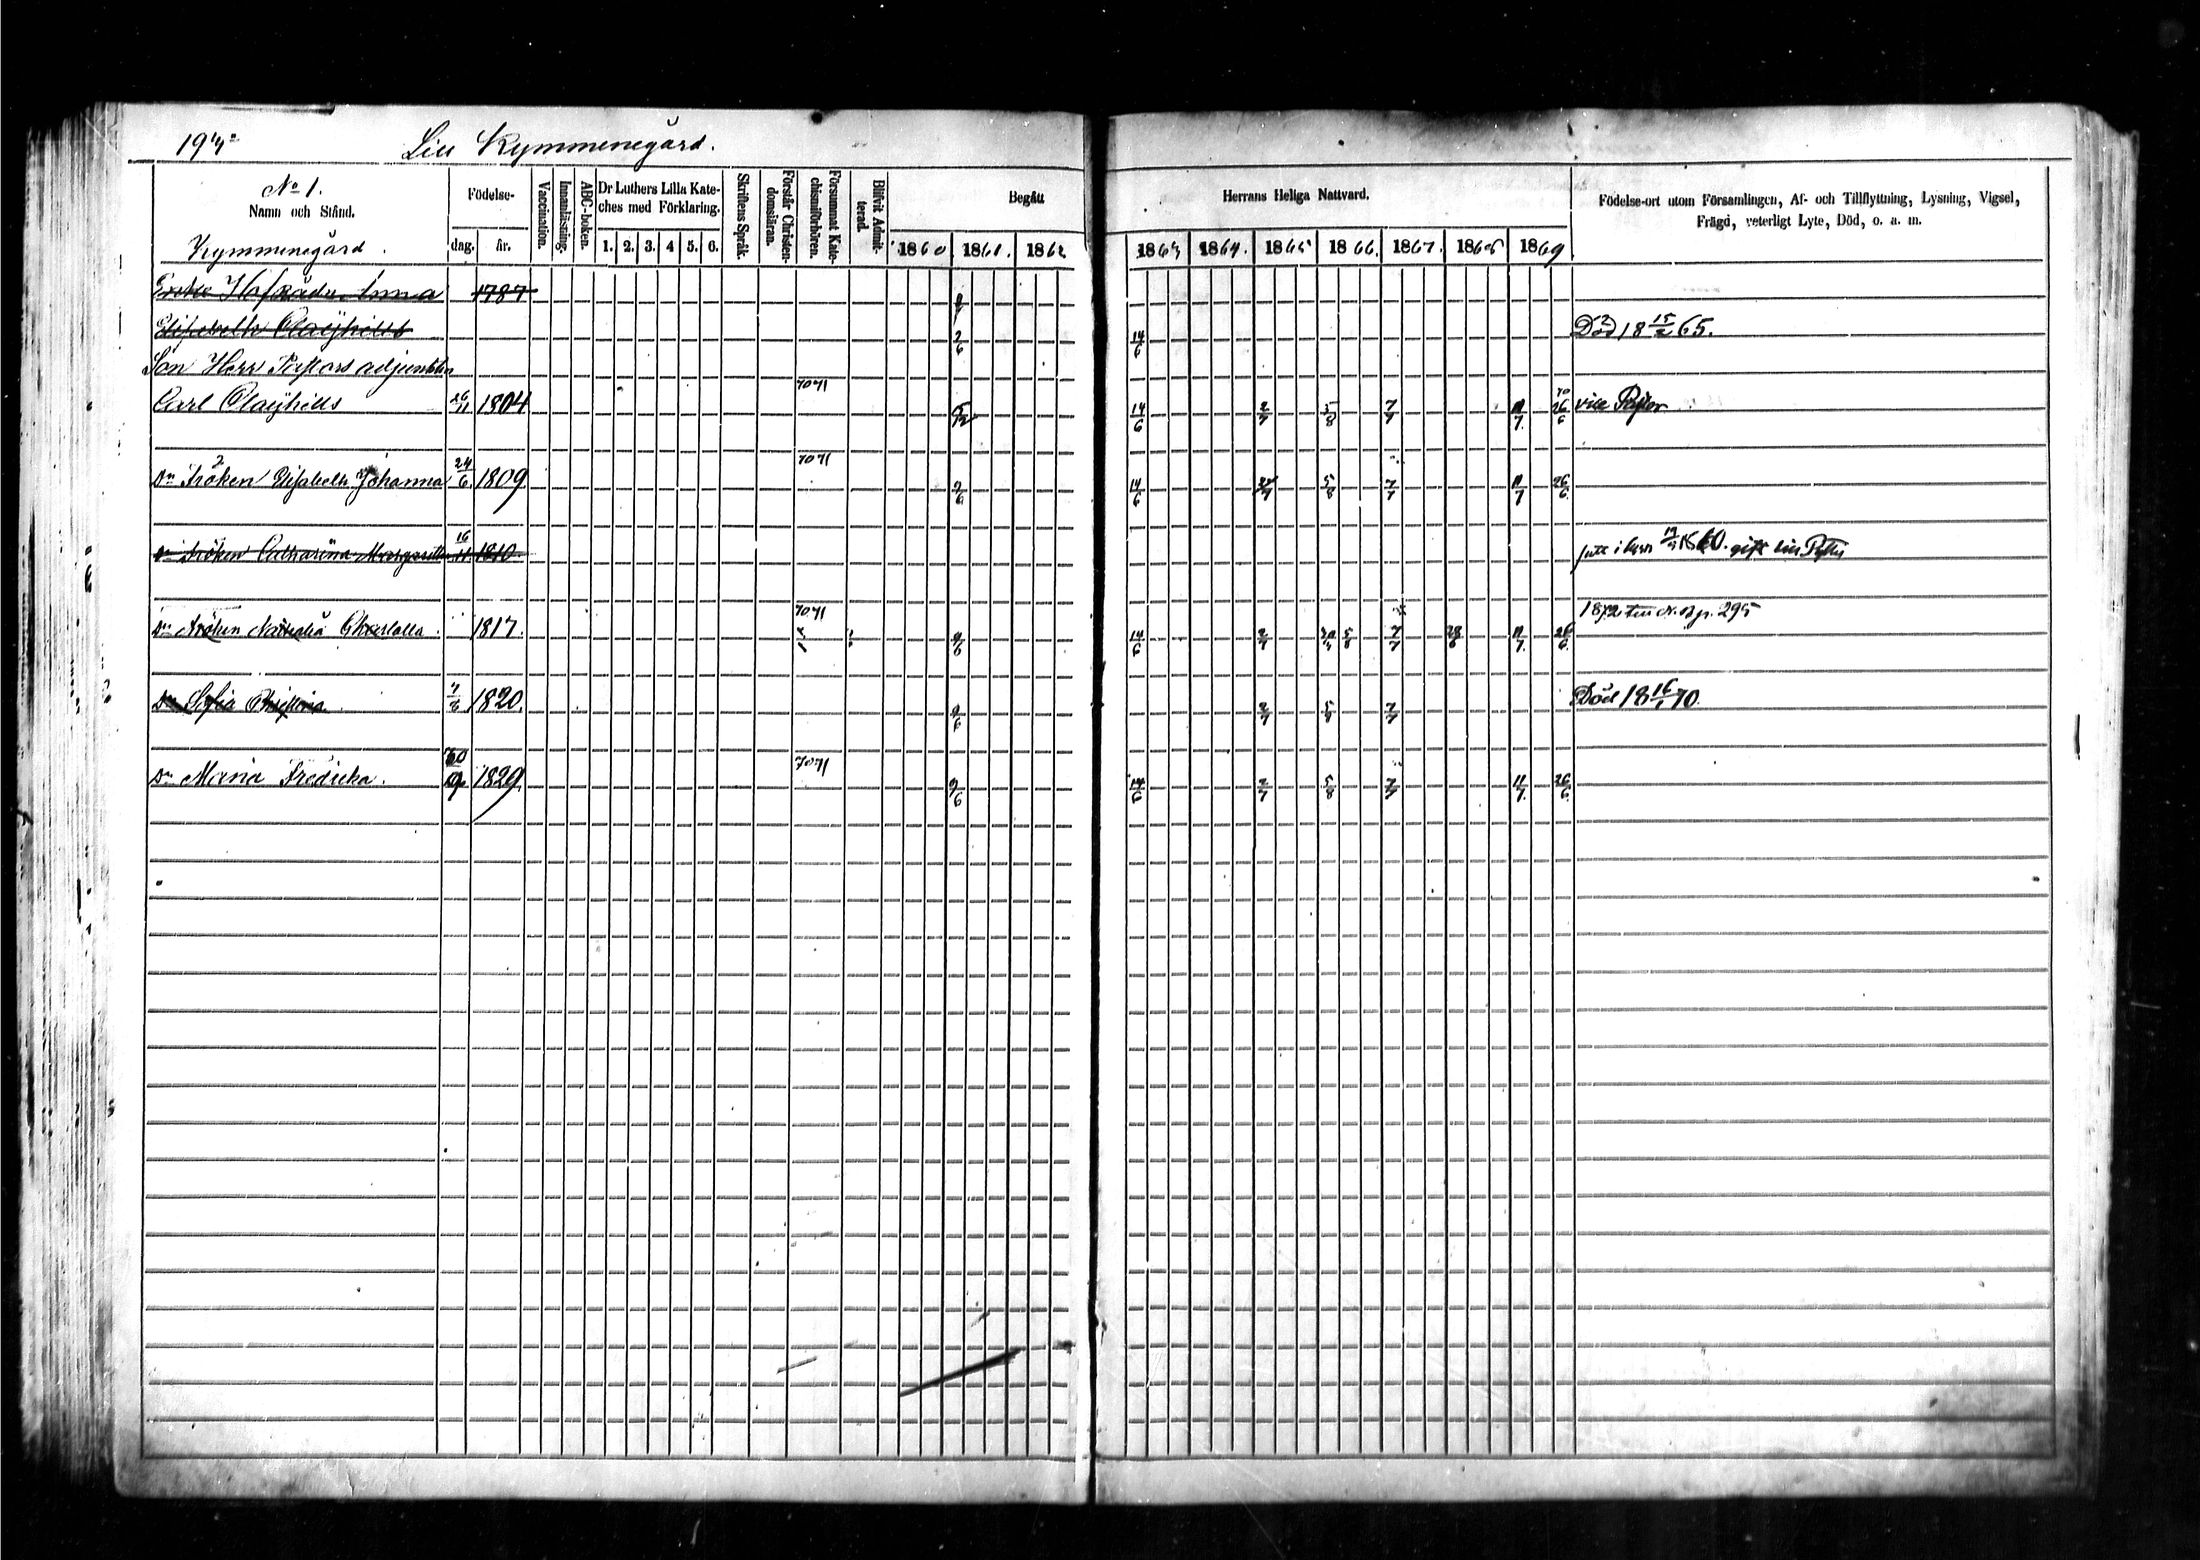 Kymmenegård.
No 1.
Namn och Stånd.
Kymmenegård.
Födelse-
dag. år.
Vaccination.
Innanläsning.
ABC-boken.
Dr Luthers Lilla Kate-
ches med Förklaring.
1. 2. 3. 4 5. 6.
Skriftens Språk.
Förstår Christen-
domsläran.
Försummat Kate-
chismiförhören.
Blifvit Admit-
terad.
Begått
1860 1861. 1862
Herrans Heliga Nattvard.
1863 1864. 1865 1866. 1867. 1868 1869
Födelse-ort utom Församlingen, Af- och Tillflyttning, Lysning, Vigsel,
Frägd, veterligt Lyte, Död, o. a. m.
Enke Hofrådin Anna 1787
Elisabeth Clayhills 2/6 14/6 Död 18 15/2 65.
Son Herr Pastors adjunkten
Carl Clayhills 26/11 1804 7071 14/6 2/7 5/8 7/7 11/7. 70 26/6 vice Pastor
Dr Fröken Elisabeth Johanna 24/6. 1809 7071 2/6 14/6 5/8 7/7 11/7 26/6.
Dr Fröken Catharina Margaretha 16/11. 1810 gift
Dr Fröken Natalia Charlotta. 1817. 7071 9/6 14/6 2/7 5/8 7/7 28/6 11/7. 26/6. 295
Dr Sofia Christina 7/6 1820. 9/6 2/7 5/8 7/7 Död 18 16/1 70.
Dr Maria Fredrika. 1829. 7071 9/6 14/6 2/7 5/8 7/7 11/7. 26/6.